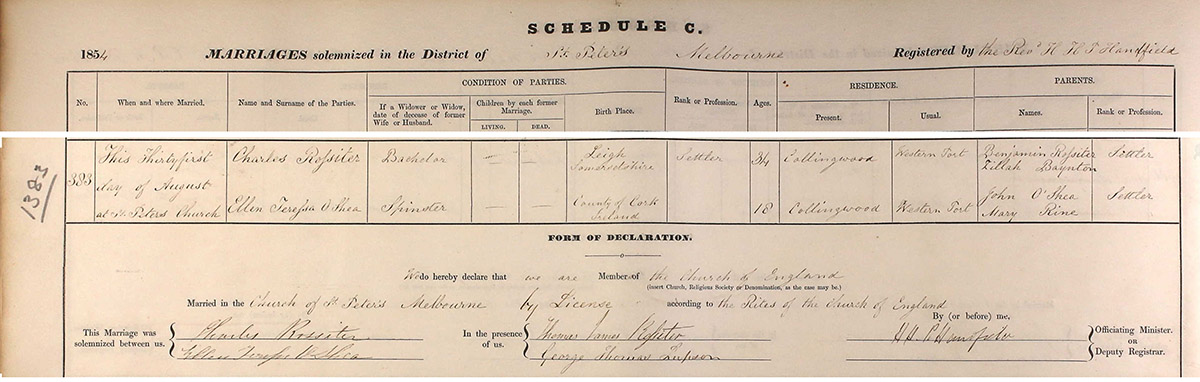 SCHEDULE C.
1854 MARRIAGES solemnized in the District of St. Peter's Melbourne Registered by the Revd. H H P Handfield
No. When and where Married. Name and Surname of the Parties. CONDITION OF PARTIES. Rank or Profession. Ages. RESIDENCE. PARENTS.
If a Widower or Widow, date of decease of former Wife or Husband. Children by each former Marriage. LIVING. DEAD. Birth Place. Present. Usual. Names. Rank or Profession.
1383
383
This Thirtyfirst day of August at St. Peters Church
Charles Rossiter Bachelor — — Leigh Somersetshire Settler 34 Collingwood Western Port Benjamin Rossiter Zillah Baynton Settler
Ellen Teressa O'Shea Spinster — — County of Cork Ireland 18 Collingwood Western Port John O'Shea Mary Rine Settler
FORM OF DECLARATION.
We do hereby declare that we are Member of the Church of England
(insert Church, Religious Society or Denomination, as the case may be.)
Married in the Church of St Peter's Melbourne by License according to the Rites of the Church of England
By (or before) me,
This Marriage was solemnized between us.
Charles Rossiter
Ellen Teresa O'Shea
In the presence of us.
Thomas James
George Thomas
H H P Handfield
Officiating Minister.
or
Deputy Registrar.